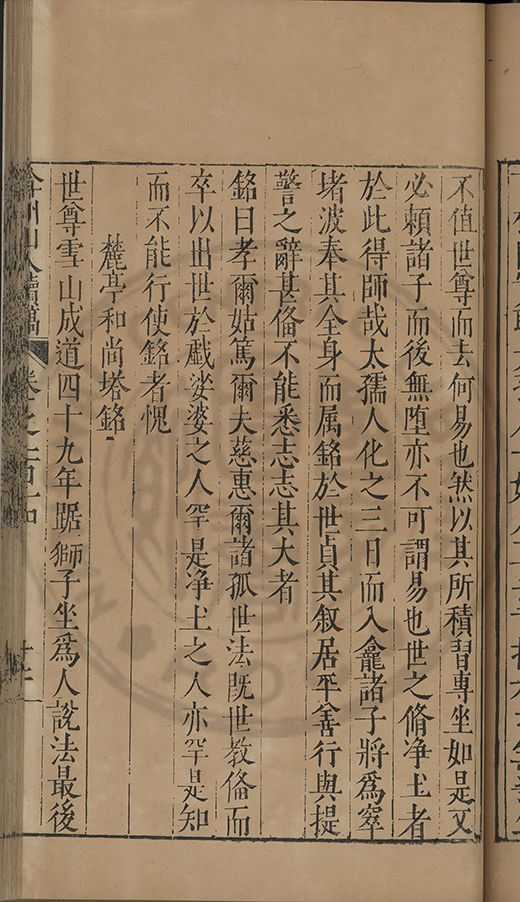 不值世尊而去何易也然以其所積習專坐如是又
必頼諸子而後無堕亦不可謂易也世之脩净土者
於此得師哉太孺人化之三日而入龕諸子將爲窣
堵波奉其全身而属銘於世貞其叙居平善行與提
警之辭甚備不能悉志志其大者
銘曰孝爾姑篤爾夫慈惠爾諸孤世法既世教備而
卒以出世於戲娑婆之人罕是净土之人亦罕是知
而不能行使銘者愧
麓亭和尚塔銘
世尊雪山成道四十九年踞獅子坐爲人說法最後